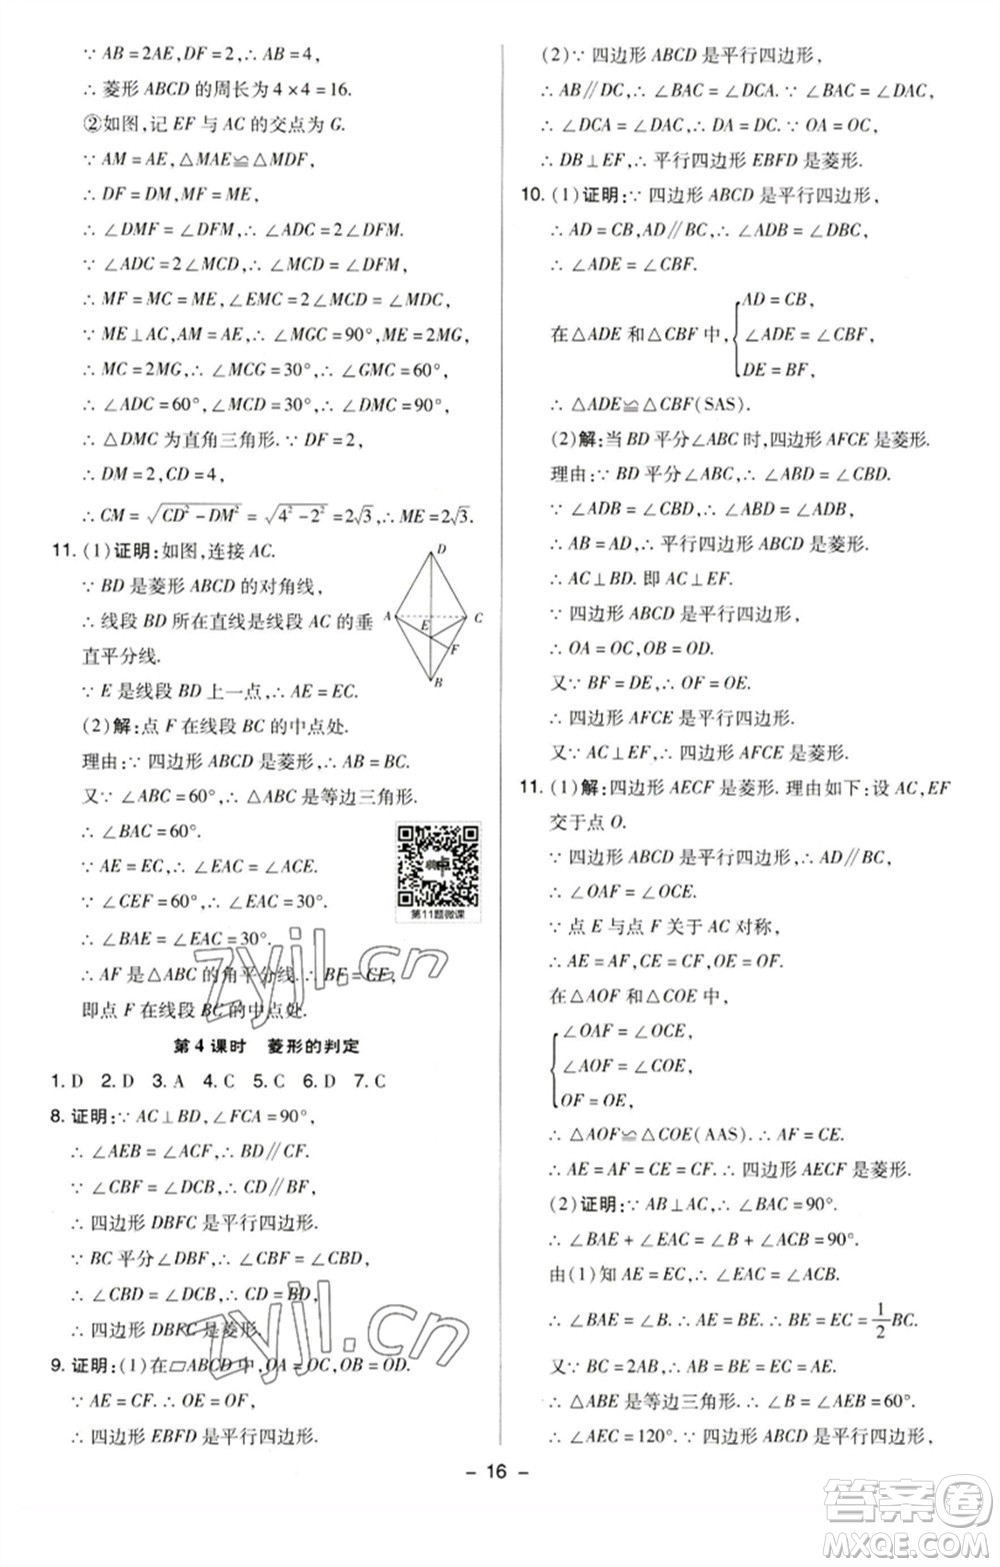 ∵ AB = 2AE, DF = 2, ∴ AB = 4,
∴ 菱形 ABCD 的周长为 4 × 4 = 16.
②如图,记 EF 与 AC 的交点为 G.
∵ AM = AE, △MAE ≌ △MDF,
∴ DF = DM, MF = ME,
∴ ∠DMF = ∠DFM, ∴ ∠ADC = 2∠DFM.
∵ ∠ADC = 2∠MCD, ∴ ∠MCD = ∠DFM,
∴ MF = MC = ME, ∠EMC = 2∠MCD = ∠MDC,
∵ ME ⊥ AC, AM = AE, ∴ ∠MGC = 90°, ME = 2MG,
∴ MC = 2MG, ∴ ∠MCG = 30°, ∴ ∠GMC = 60°,
∴ ∠ADC = 60°, ∠MCD = 30°, ∴ ∠DMC = 90°,
∴ △DMC 为直角三角形. ∵ DF = 2,
∴ DM = 2, CD = 4,
∴ CM = √(CD² − DM²) = √(4² − 2²) = 2√3, ∴ ME = 2√3.
11. (1)证明:如图,连接 AC.
∵ BD 是菱形 ABCD 的对角线,
∴ 线段 BD 所在直线是线段 AC 的垂
直平分线.
∵ E 是线段 BD 上一点, ∴ AE = EC.
(2)解:点 F 在线段 BC 的中点处.
理由:∵ 四边形 ABCD 是菱形, ∴ AB = BC.
又∵ ∠ABC = 60°, ∴ △ABC 是等边三角形.
∴ ∠BAC = 60°.
∵ AE = EC, ∴ ∠EAC = ∠ACE.
∵ ∠CEF = 60°, ∴ ∠EAC = 30°.
∴ ∠BAE = ∠EAC = 30°.
∴ AF 是 △ABC 的角平分线. ∴ BF = CF,
即点 F 在线段 BC 的中点处.
D
A
E
C
F
B
第11题微课
第 4 课时 菱形的判定
1. D 2. D 3. A 4. C 5. C 6. D 7. C
8. 证明:∵ AC ⊥ BD, ∠FCA = 90°,
∴ ∠AEB = ∠ACF, ∴ BD // CF.
∵ ∠CBF = ∠DCB, ∴ CD // BF,
∴ 四边形 DBFC 是平行四边形.
∵ BC 平分∠DBF, ∴ ∠CBF = ∠CBD,
∴ ∠CBD = ∠DCB, ∴ CD = BD,
∴ 四边形 DBFC 是菱形.
9. 证明:(1)在▱ABCD 中, OA = OC, OB = OD.
∵ AE = CF. ∴ OE = OF,
∴ 四边形 EBFD 是平行四边形.
(2)∵ 四边形 ABCD 是平行四边形,
∴ AB // DC, ∴ ∠BAC = ∠DCA. ∵ ∠BAC = ∠DAC,
∴ ∠DCA = ∠DAC, ∴ DA = DC. ∵ OA = OC,
∴ DB ⊥ EF, ∴ 平行四边形 EBFD 是菱形.
10. (1)证明:∵ 四边形 ABCD 是平行四边形,
∴ AD = CB, AD // BC, ∴ ∠ADB = ∠DBC,
∴ ∠ADE = ∠CBF.
在 △ADE 和 △CBF 中,
AD = CB,
∠ADE = ∠CBF,
DE = BF,
∴ △ADE ≌ △CBF(SAS).
(2)解:当 BD 平分∠ABC 时,四边形 AFCE 是菱形.
理由:∵ BD 平分∠ABC, ∴ ∠ABD = ∠CBD.
∵ ∠ADB = ∠CBD, ∴ ∠ABD = ∠ADB,
∴ AB = AD, ∴ 平行四边形 ABCD 是菱形.
∴ AC ⊥ BD. 即 AC ⊥ EF.
∵ 四边形 ABCD 是平行四边形,
∴ OA = OC, OB = OD.
又∵ BF = DE, ∴ OF = OE.
∴ 四边形 AFCE 是平行四边形.
又∵ AC ⊥ EF, ∴ 四边形 AFCE 是菱形.
11. (1)解:四边形 AECF 是菱形. 理由如下:设 AC, EF
交于点 O.
∵ 四边形 ABCD 是平行四边形, ∴ AD // BC,
∴ ∠OAF = ∠OCE.
∵ 点 E 与点 F 关于 AC 对称,
∴ AE = AF, CE = CF, OE = OF.
在 △AOF 和 △COE 中,
∠OAF = ∠OCE,
∠AOF = ∠COE,
OF = OE,
∴ △AOF ≌ △COE(AAS). ∴ AF = CE.
∴ AE = AF = CE = CF. ∴ 四边形 AECF 是菱形.
(2)证明:∵ AB ⊥ AC, ∴ ∠BAC = 90°.
∴ ∠BAE + ∠EAC = ∠B + ∠ACB = 90°.
由(1)知 AE = EC, ∴ ∠EAC = ∠ACB.
∴ ∠BAE = ∠B, ∴ AE = BE. ∴ BE = EC = 1/2 BC.
又∵ BC = 2AB, ∴ AB = BE = AE.
∴ △ABE 是等边三角形. ∴ ∠B = ∠AEB = 60°.
∴ ∠AEC = 120°. ∵ 四边形 ABCD 是平行四边形,
– 16 –
zyjl.cn
zyjl.cn
答案卷
MXQE.COM